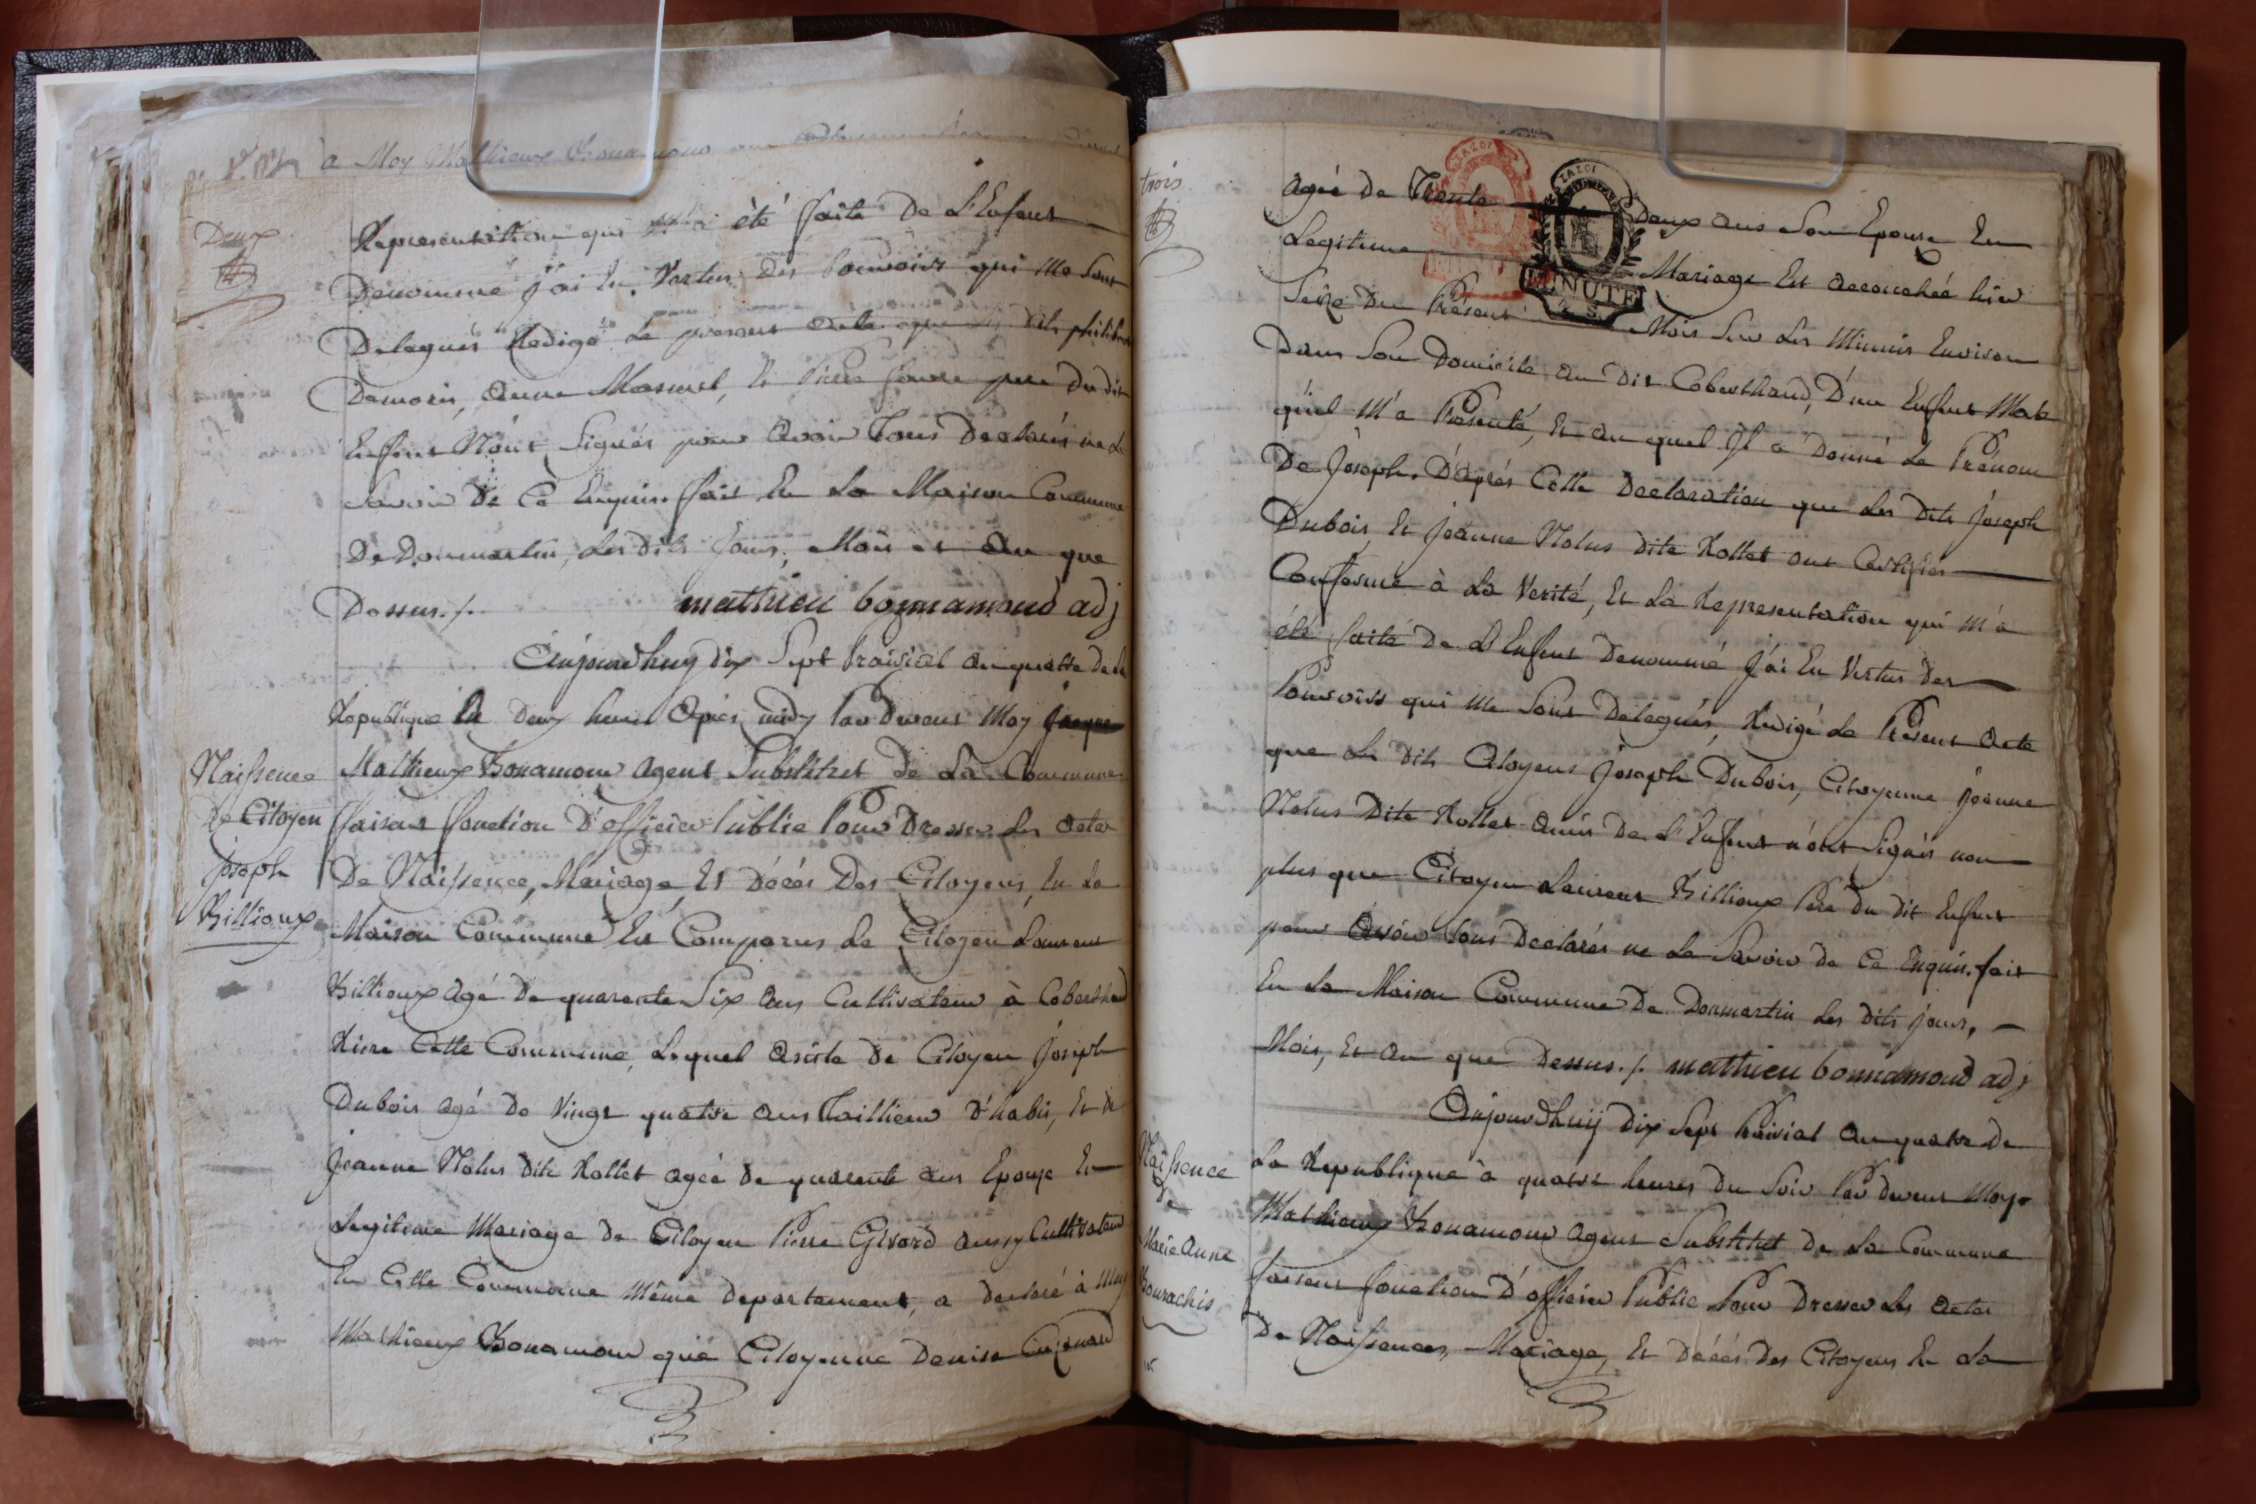 à Moy Mathieux Bonamour
Deux
Representation qui m'a été faite De L'Enfent
Denommé j'ai En Vertus Des Pouvoirs qui me Sont
Delegués Redigé Le present acte que dits
Demoris, Anne Masmet, Et Pierre pere Du dit
Enfent N'ont Signés pour Avoir Tous Declarés ne Le
Savoir De Ce Enquis. fait En La Maison Commune
De Dommartin, Les Dits Jours, Mois et An que
Dessus ./. mathieu bonnamoud adj
Aujourdhuy dix Sept Prairial an quatre de La
Republique à Deux heures Apres midy Par Devant Moy
Naissence
de Citoyen
Joseph
Billioux
Mathieux Bonamour Agent Substitut De La Commune
Faisant fonction D'officier Public Pour Dresser Les Actes
De Naissence, Mariage, Et Décés Des Citoyens, En La
Maison Commune Est Comparus Le Citoyen Laurent
Billioux Agé De quarante Six Ans Cultivateur à Coberthoud
Riere Cette Commune, Lequel Assiste De Citoyen Joseph
Dubois agé De Vingt quatre ans Taillieur D'habis, Et de
Jeanne Nolus Dite Rollet agée De quarente ans Epouse En
Legitime Mariage De Citoyen Pierre Girard aussy Cultivateur
En Cette Commune Même Departement, a declaré à Moy
Mathieux Bonamour que Citoyenne Denise
trois
agée De Trente Deux ans Son Epouse En
Legitime Mariage Est accouchée hier
Seize Du Présent Mois Sur Les Minuis Environ
Dans Son Domicile, au Dit Coberthoud, D'un Enfent Mal
qu'el M'a Présenté, Et au quel Il a Donné Le Prénom
De Joseph. D'Aprés Cette Declaration que Les Dits Joseph
Dubois, Et Jeanne Nolus Dite Rollet ont Certifiés
Conforme à La Verité, Et La Representation qui m'a
été faite De L'Enfent Denommé j'ai En Vertus Des
Pouvoirs qui me Sont Delegués, Redigé Le Présent Acte
que Les Dits Citoyens Joseph Dubois, Citoyenne Jeanne
Nolus Dite Rollet Amis De L'Enfent n'ont Signés non
plus que Citoyen Laurent Billioux Pere Du Dit Enfent
pour Avoir Tous Declarés ne Le Savoir De Ce Enquis. fait
En La Maison Commune De Dommartin Les Dits Jours,
Mois, Et An que Dessus ./. mathieu bonnamoud adj
Aujourdhuij Dix Sept Prairial An quatre De
Naissence
De
Marie Anne
Bourachis
La Republique à quatre heures Du Soir Par Devant Moy
Mathieux Bonamour Agent Substitut De La Commune
faisant fonction D'officier Public Pour Dresser Les Actes
De Naissences, Mariage, Et Décés Des Citoyens En La